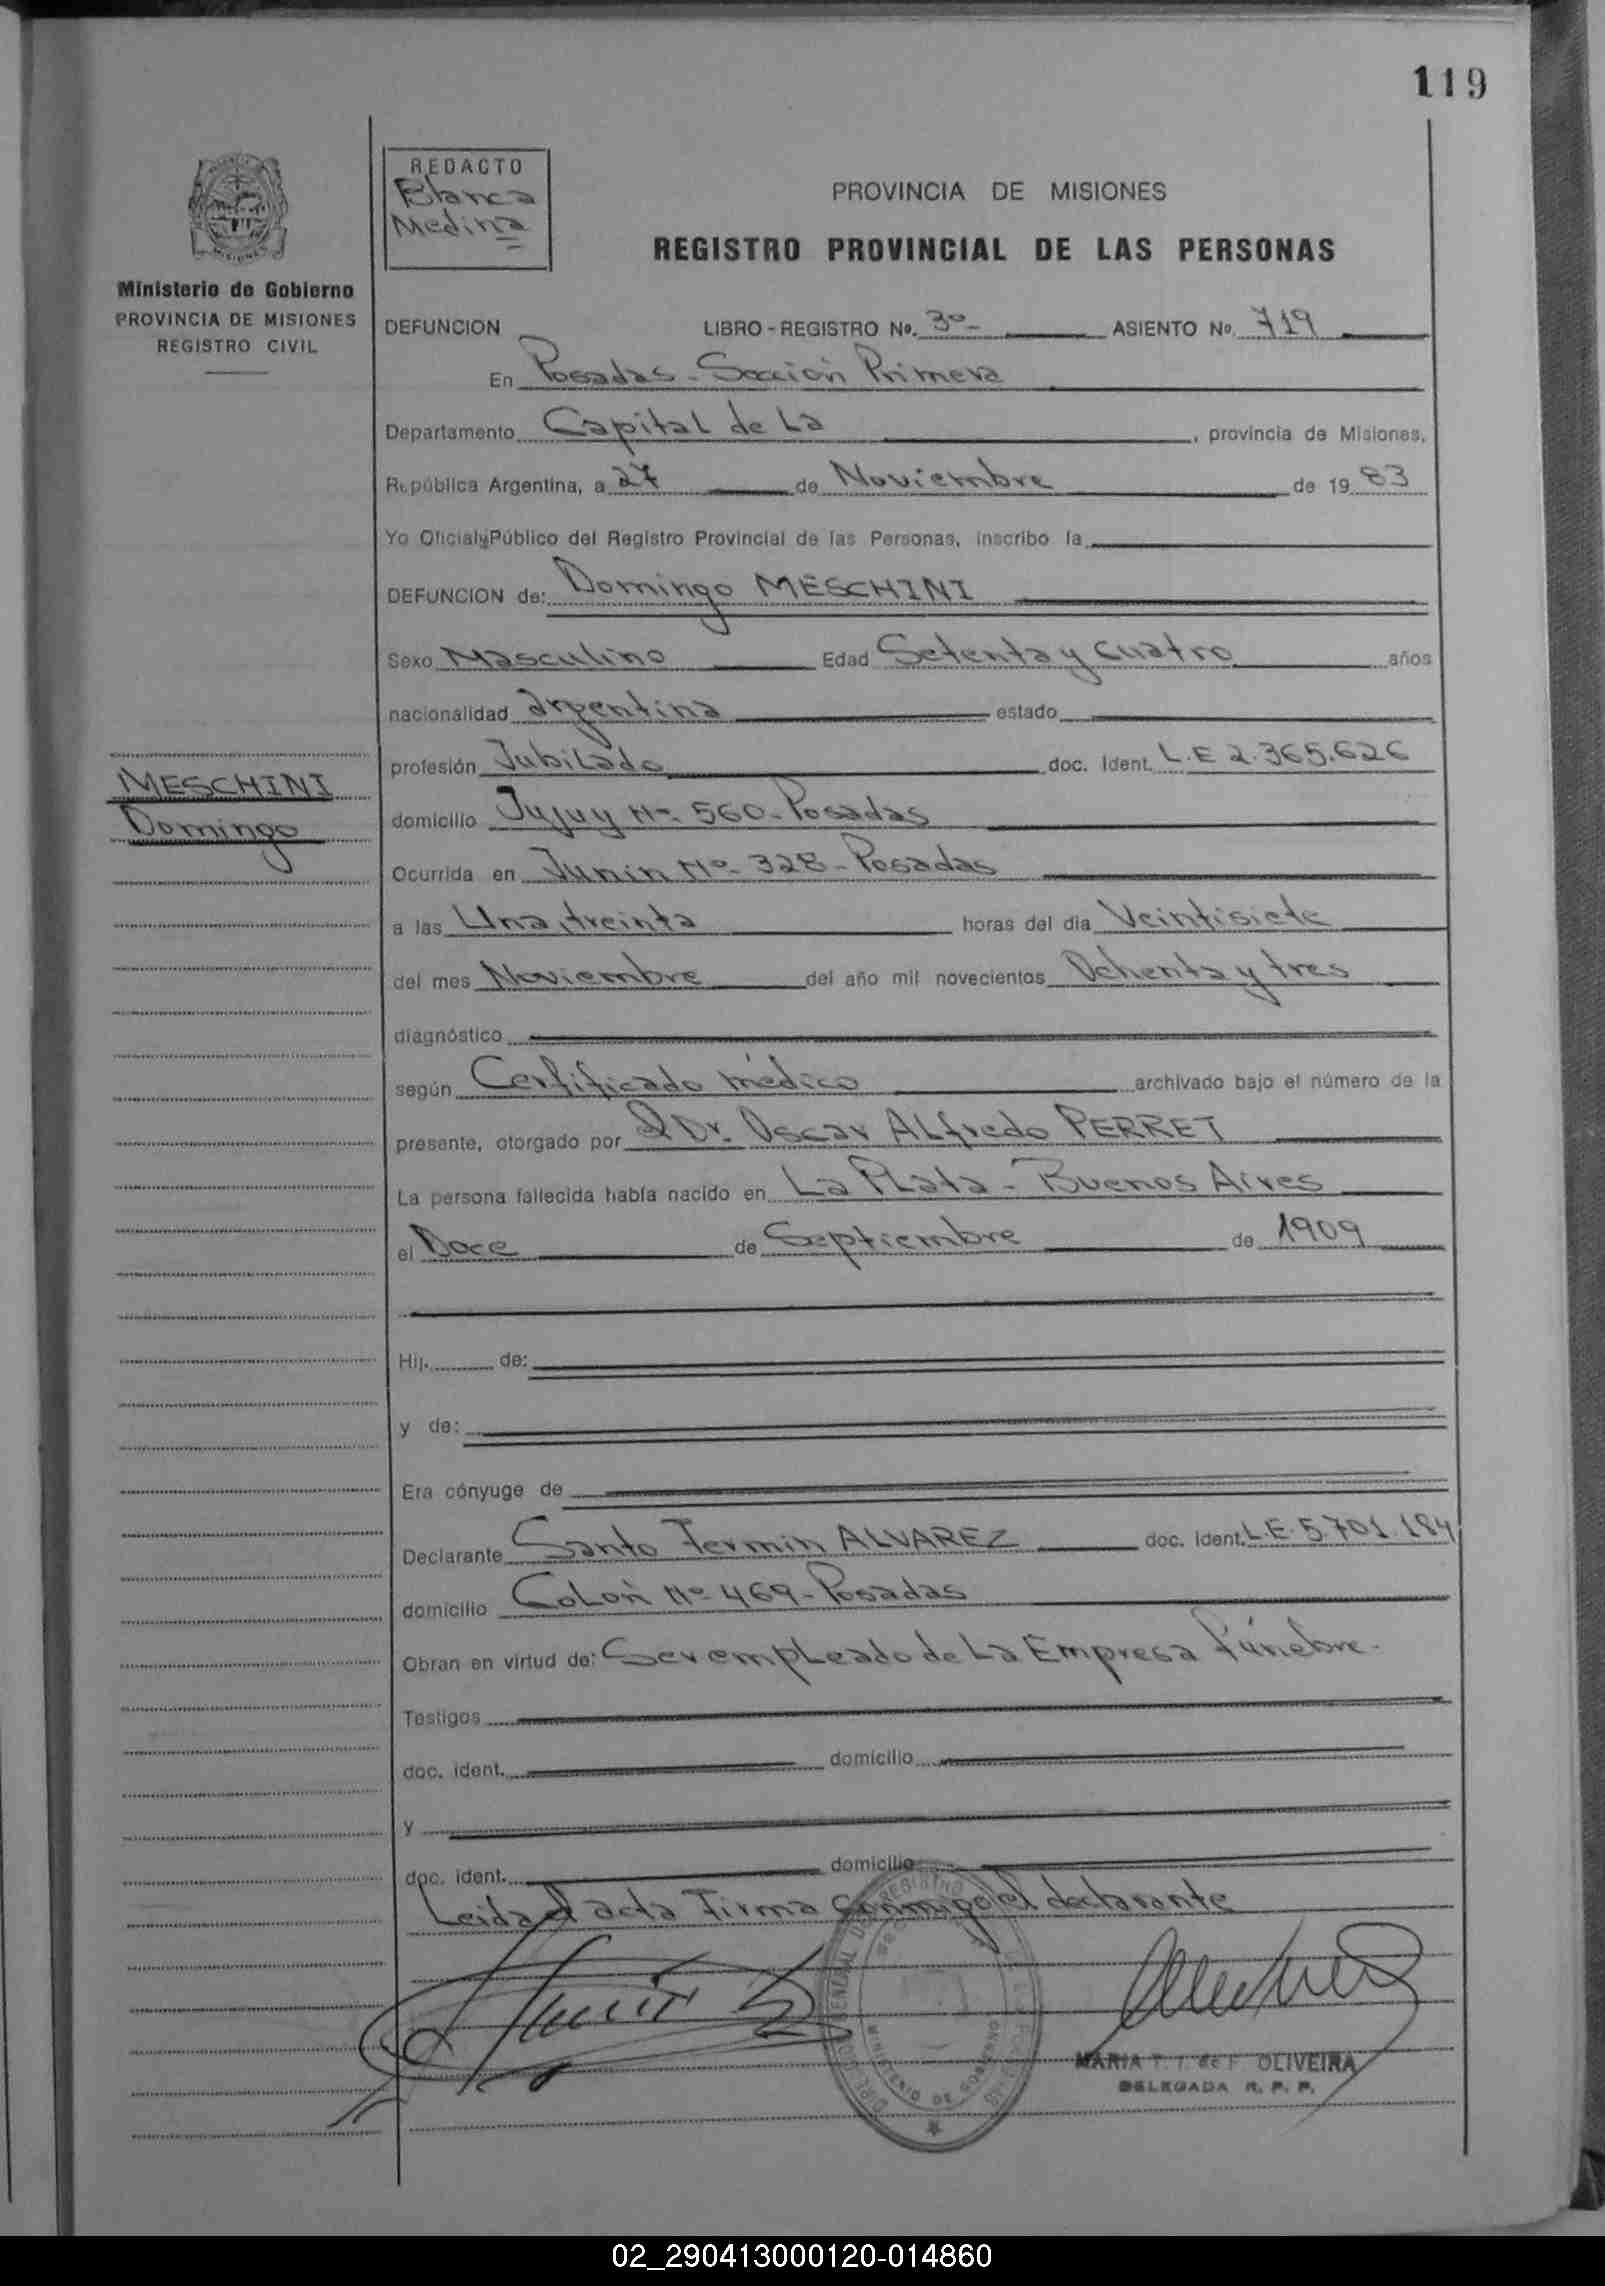 119
REDACTO
Blanca
Medina
PROVINCIA DE MISIONES
REGISTRO PROVINCIAL DE LAS PERSONAS
Ministerio de Gobierno
PROVINCIA DE MISIONES
REGISTRO CIVIL
DEFUNCION LIBRO - REGISTRO No. 3º- ASIENTO No. 719
En Posadas - Sección Primera
Departamento Capital de La , provincia de Misiones,
República Argentina, a 27 de Noviembre de 19 83
Yo Oficial Público del Registro Provincial de las Personas, inscribo la
DEFUNCION de: Domingo MESCHINI
Sexo Masculino Edad Setenta y cuatro años
nacionalidad argentina estado
profesión Jubilado doc. Ident. L.E 2.365.626
MESCHINI
Domingo
domicilio Jujuy Nº- 560- Posadas
Ocurrida en Junin Nº- 328- Posadas
a las Una, treinta horas del día Veintisiete
del mes Noviembre del año mil novecientos Ochenta y tres
diagnóstico
según Certificado médico archivado bajo el número de la
presente, otorgado por Dr. Oscar Alfredo PERRET
La persona fallecida había nacido en La Plata - Buenos Aires
el Doce de Septiembre de 1909
Hij. de:
y de:
Era cónyuge de
Declarante Santo Fermin ALVAREZ doc. ident. L.E. 5.701.184
domicilio Colón Nº 469- Posadas
Obran en virtud de: Ser empleado de La Empresa fúnebre.
Testigos
doc. ident. domicilio
y
doc. ident. domicilio
Leida el acta Firma conmigo el declarante
MINISTERIO DE GOBIERNO
MARIA T. T. de F. OLIVEIRA
DELEGADA R. P. P.
02_290413000120-014860